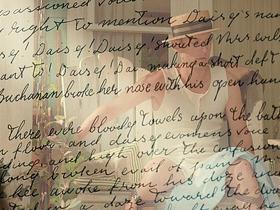 passioned voices
right to mention Daisy's na
Daisy! Daisy!" shouted Mrs. wil
ant to Daisy! Dai making a short deft
Buchanan broke her nose with his open han
there were bloody towels upon the bat
floor and women's voice
ding, and high over the confusion
long broken wail of pain
Kee awoke from his doze and
a daze toward the doo